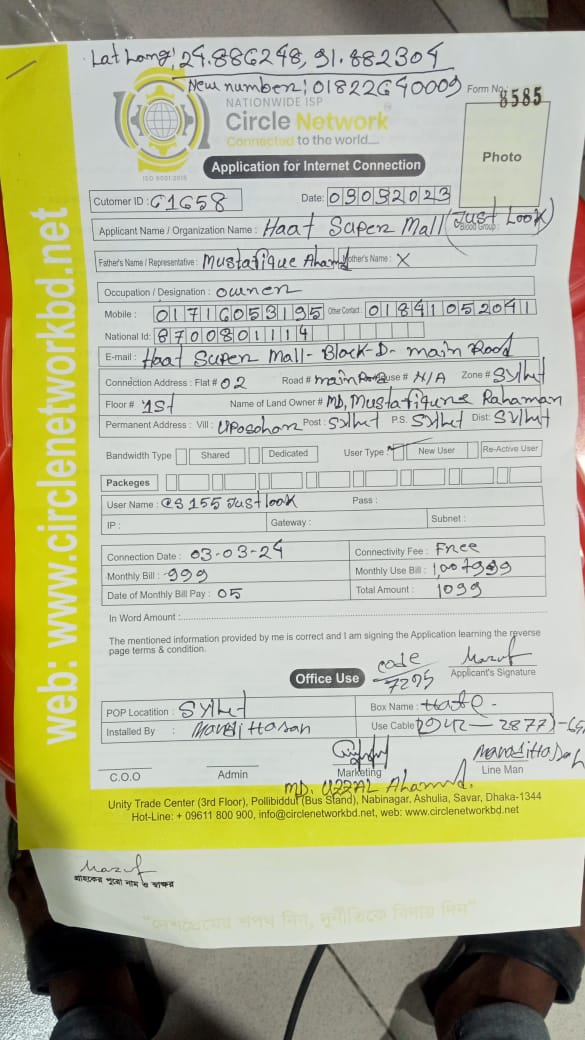 Lat Long: 24.886248, 91.882304
New number: 01822640009
Form No: 8585
NATIONWIDE ISP
Circle Network
Connected to the world....
ISO 9001:2015
Photo
Application for Internet Connection
Cutomer ID : 61658 Date: 09032023
Applicant Name / Organization Name : Haat Super Mall (Just Look)
Blood Group :
Father's Name / Representative : Mustafique Ahamd Mother's Name : X
Occupation / Designation : owner
Mobile : 01716053195 Other Contact : 01841052041
National Id: 8700801114
E-mail : Haat Super Mall- Black-D- main Road
Connection Address : Flat # 02 Road # main House # N/A Zone # Sylhet
Floor # 1st Name of Land Owner # MD, Mustafiqure Rahaman
Permanent Address : Vill : Uposohor Post : Sylhet P.S. Sylhet Dist: Sylhet
Bandwidth Type Shared Dedicated User Type: New User Re-Active User
Packeges
User Name : CS155 Justlook Pass :
IP : Gateway : Subnet :
Connection Date : 03-03-24 Connectivity Fee : Free
Monthly Bill : 999 Monthly Use Bill : 100+999
Date of Monthly Bill Pay : 05 Total Amount : 1099
In Word Amount :
The mentioned information provided by me is correct and I am signing the Application learning the reverse
page terms & condition.
Office Use
code
7295
Maruf
Applicant's Signature
POP Locatition : Sylhet Box Name :
Installed By : Mahadi Hasan Use Cable
C.O.O Admin Marketing Line Man
MD. UZZAL Ahamd.
Unity Trade Center (3rd Floor), Pollibiddut (Bus Stand), Nabinagar, Ashulia, Savar, Dhaka-1344
Hot-Line: + 09611 800 900, info@circlenetworkbd.net, web: www.circlenetworkbd.net
web: www.circlenetworkbd.net
Maruf
গ্রাহকের পুরো নাম ও স্বাক্ষর
"দেশপ্রেমের শপথ নিন, দুর্নীতিকে বিদায় দিন"